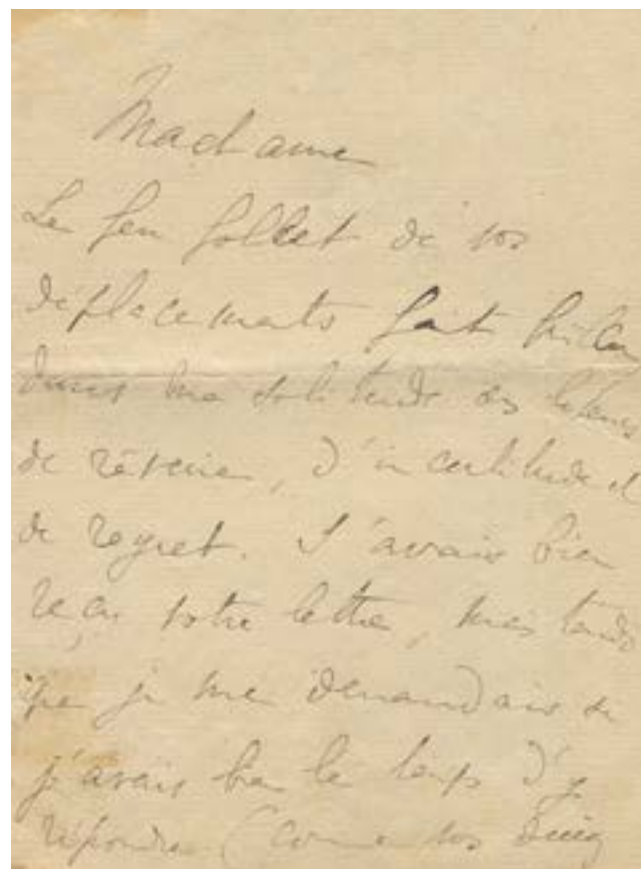 Madame
Le feu follet de vos
déplacements fait briller
dans ma solitude des lueurs
de rêverie, d'incertitude et
de regret. J'avais bien
reçu votre lettre, mais tandis
que je me demandais si
j'avais bien le temps d'y
répondre (comme vos